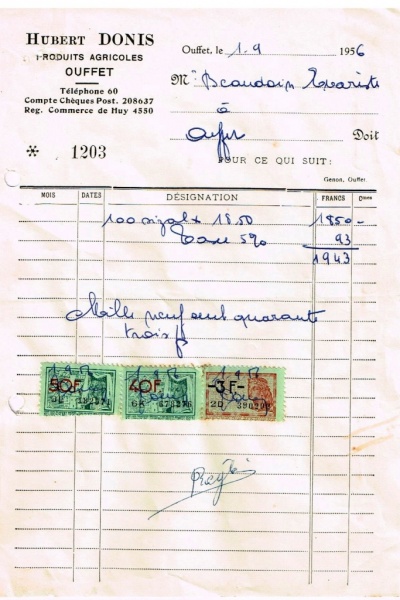 HUBERT DONIS
PRODUITS AGRICOLES
OUFFET
Téléphone 60
Compte Chèques Post. 208637
Reg. Commerce de Huy 4550
* 1203
Ouffet, le 1.9 1956
Mr Beaudoin Evariste
à
Doit
POUR CE QUI SUIT:
Genon, Ouffet.
MOIS DATES DÉSIGNATION FRANCS Cmes
100 1850 1850-
Taxe 5% 93
1943
Mille neuf cent quarante
trois f
50F 40F -3F-